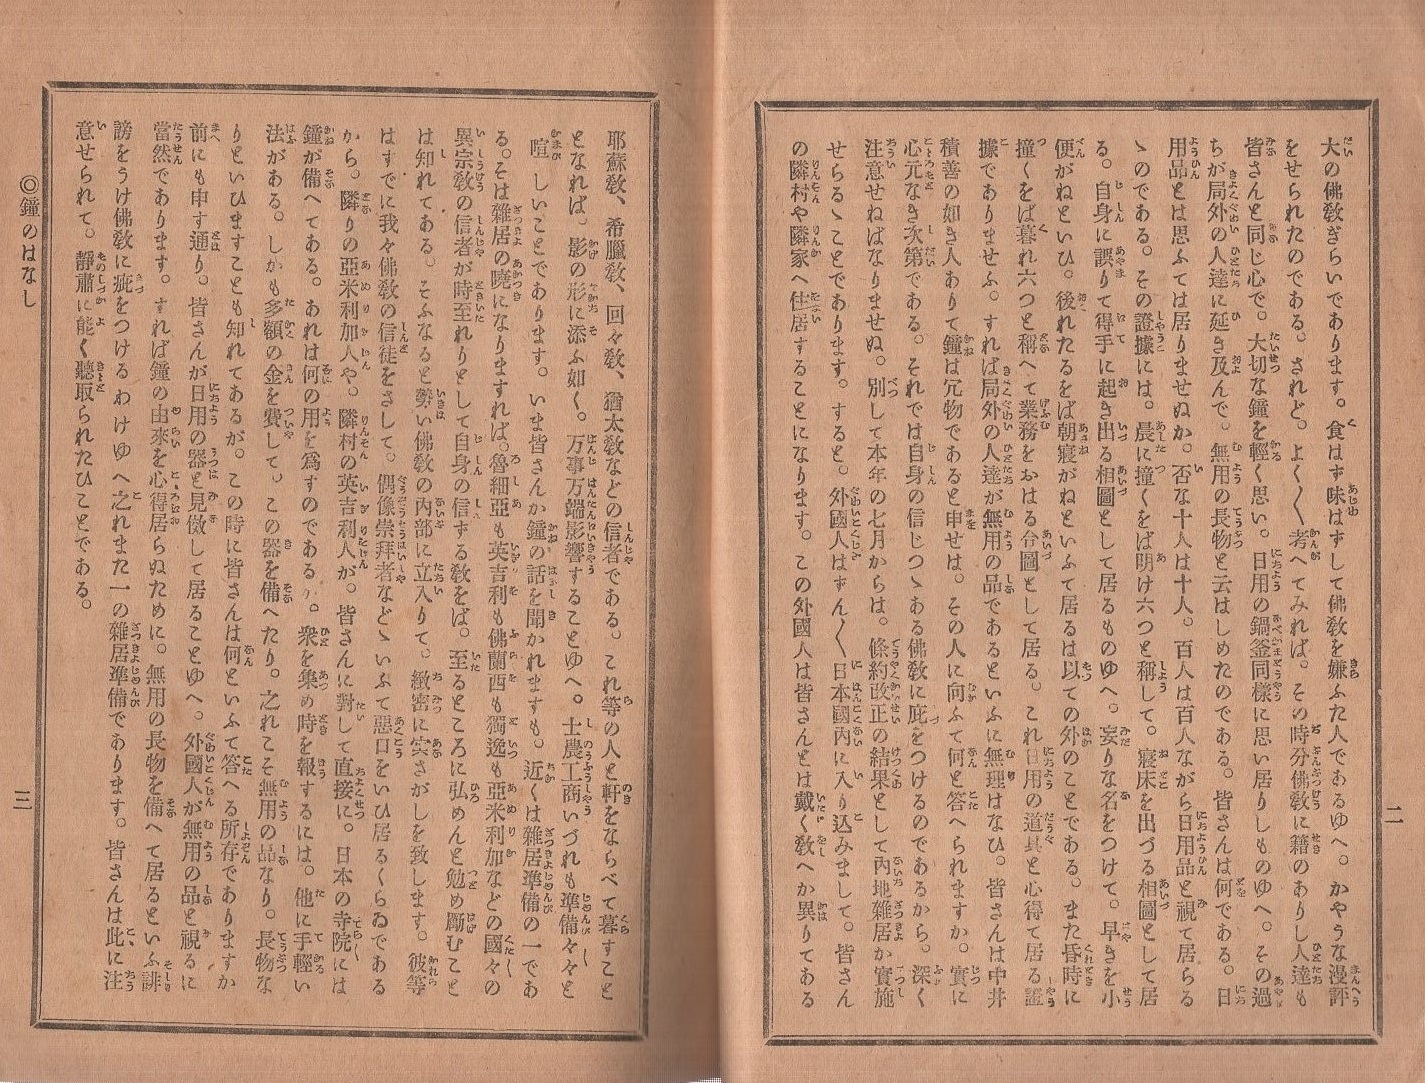 大の佛敎ぎらいであります。食はず味はずして佛敎を嫌ふた人であるゆへ。かやうな漫評
をせられたのである。されど。よく〱考へてみれば。その時分佛敎に籍のありし人達も
皆さんと同じ心で。大切な鐘を輕く思い。日用の鍋釜同樣に思い居りしものゆへ。その過
ちが局外の人達に延き及んで。無用の長物と云はしめたのである。皆さんは何である。日
用品とは思ふては居りませぬか。否な十人は十人。百人は百人ながら日用品と視て居らる
ゝのである。その證據には。晨に撞くをば明け六つと稱して。寢床を出づる相圖として居
る。自身に誤りて得手に起き出る相圖として居るものゆへ。妄りな名をつけて。早きを小
便がねといひ。後れたるをば朝寢がねといふて居るは以ての外のことである。また昏時に
撞くをば暮れ六つと稱へて業務をおはる合圖として居る。これ日用の道具と心得て居る證
據でありませふ。すれば局外の人達が無用の品であるといふに無理はなひ。皆さんは中井
積善の如き人ありて鐘は冗物であると申せは。その人に向ふて何と答へられますか。實に
心元なき次第である。それでは自身の信じつゝある佛敎に庇をつけるのであるから。深く
注意せねばなりませぬ。別して本年の七月からは。條約改正の結果として內地雜居か實施
せらるゝことであります。すると。外國人はずん〱日本國內に入り込みまして。皆さん
の隣村や隣家へ住居することになります。この外國人は皆さんとは戴く敎へか異りてある
二
耶蘇敎、希臘敎、回々敎、猶太敎などの信者である。これ等の人と軒をならべて暮すこと
となれば。影の形に添ふ如く。万事万端影響することゆへ。士農工商いづれも準備々々と
喧しいことであります。いま皆さんか鐘の話を聞かれますも。近くは雜居準備の一であ
る。そは雜居の曉になりますれば。魯細亞も英吉利も佛蘭西も獨逸も亞米利加などの國々の
異宗敎の信者が時至れりとして自身の信ずる敎をば。至るところに弘めんと勉め勵むこと
は知れてある。そふなると勢い佛敎の內部に立入りて。緻密に实さがしを致します。彼等
はすでに我々佛敎の信徒をさして。偶像崇拜者などゝいふて惡口をいひ居るくらゐである
から。隣りの亞米利加人や。隣村の英吉利人が。皆さんに對して直接に。日本の寺院には
鐘が備へてある。あれは何の用を爲すのである。衆を集め時を報するには。他に手輕い
法がある。しかも多額の金を費して。この器を備へたり。之れこそ無用の品なり。長物な
りといひますことも知れてあるが。この時に皆さんは何といふて答へる所存でありますか
前にも申す通り。皆さんが日用の器と見做して居ることゆへ。外國人が無用の品と視るに
當然であります。すれば鐘の由來を心得居らぬために。無用の長物を備へて居るといふ誹
謗をうけ佛敎に疵をつけるわけゆへ之れまた一の雜居準備であります。皆さんは此に注
意せられて。靜肅に能く聽取られたひことである。
◎鐘のはなし
三